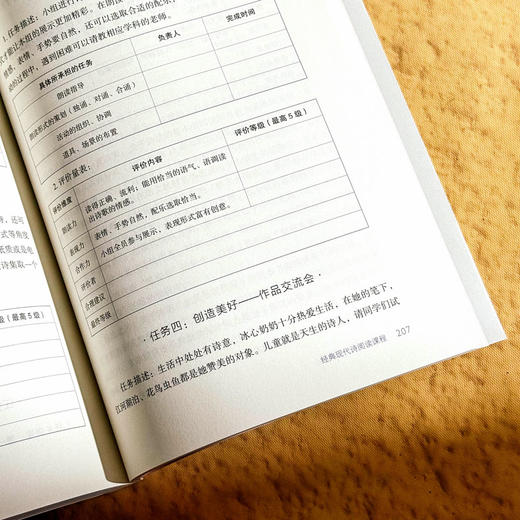 1. 任务描述：小组进行
才能让本组的展示更加精彩。在朗读
情感，表情、手势要自然，还可以选取合适的配乐，
动的过程中，遇到困难可以请教相应学科的老师。
具体所承担的任务 负责人 完成时间
朗读指导
朗读形式的策划（独诵、对诵、合诵）
活动的组织、协调
道具、场景的布置
2. 评价量表：
评价维度 评价内容 评价等级（最高5级）
朗读力 读得正确、流利；能用恰当的语气、语调读
出诗歌的情感。
表现力 表情、手势自然，配乐选取恰当。
合作力 小组全员参与展示，表现形式富有创意。
评价者
合理建议
最终等级
· 任务四：创造美好——作品交流会 ·
任务描述：生活中处处有诗意，冰心奶奶十分热爱生活，在她的笔下，
江河湖泊、花鸟虫鱼都是她赞美的对象。儿童就是天生的诗人，请同学们试
经典现代诗阅读课程 207
还可
式等角度
纸质或是电
诗集取一个
（最高5级）